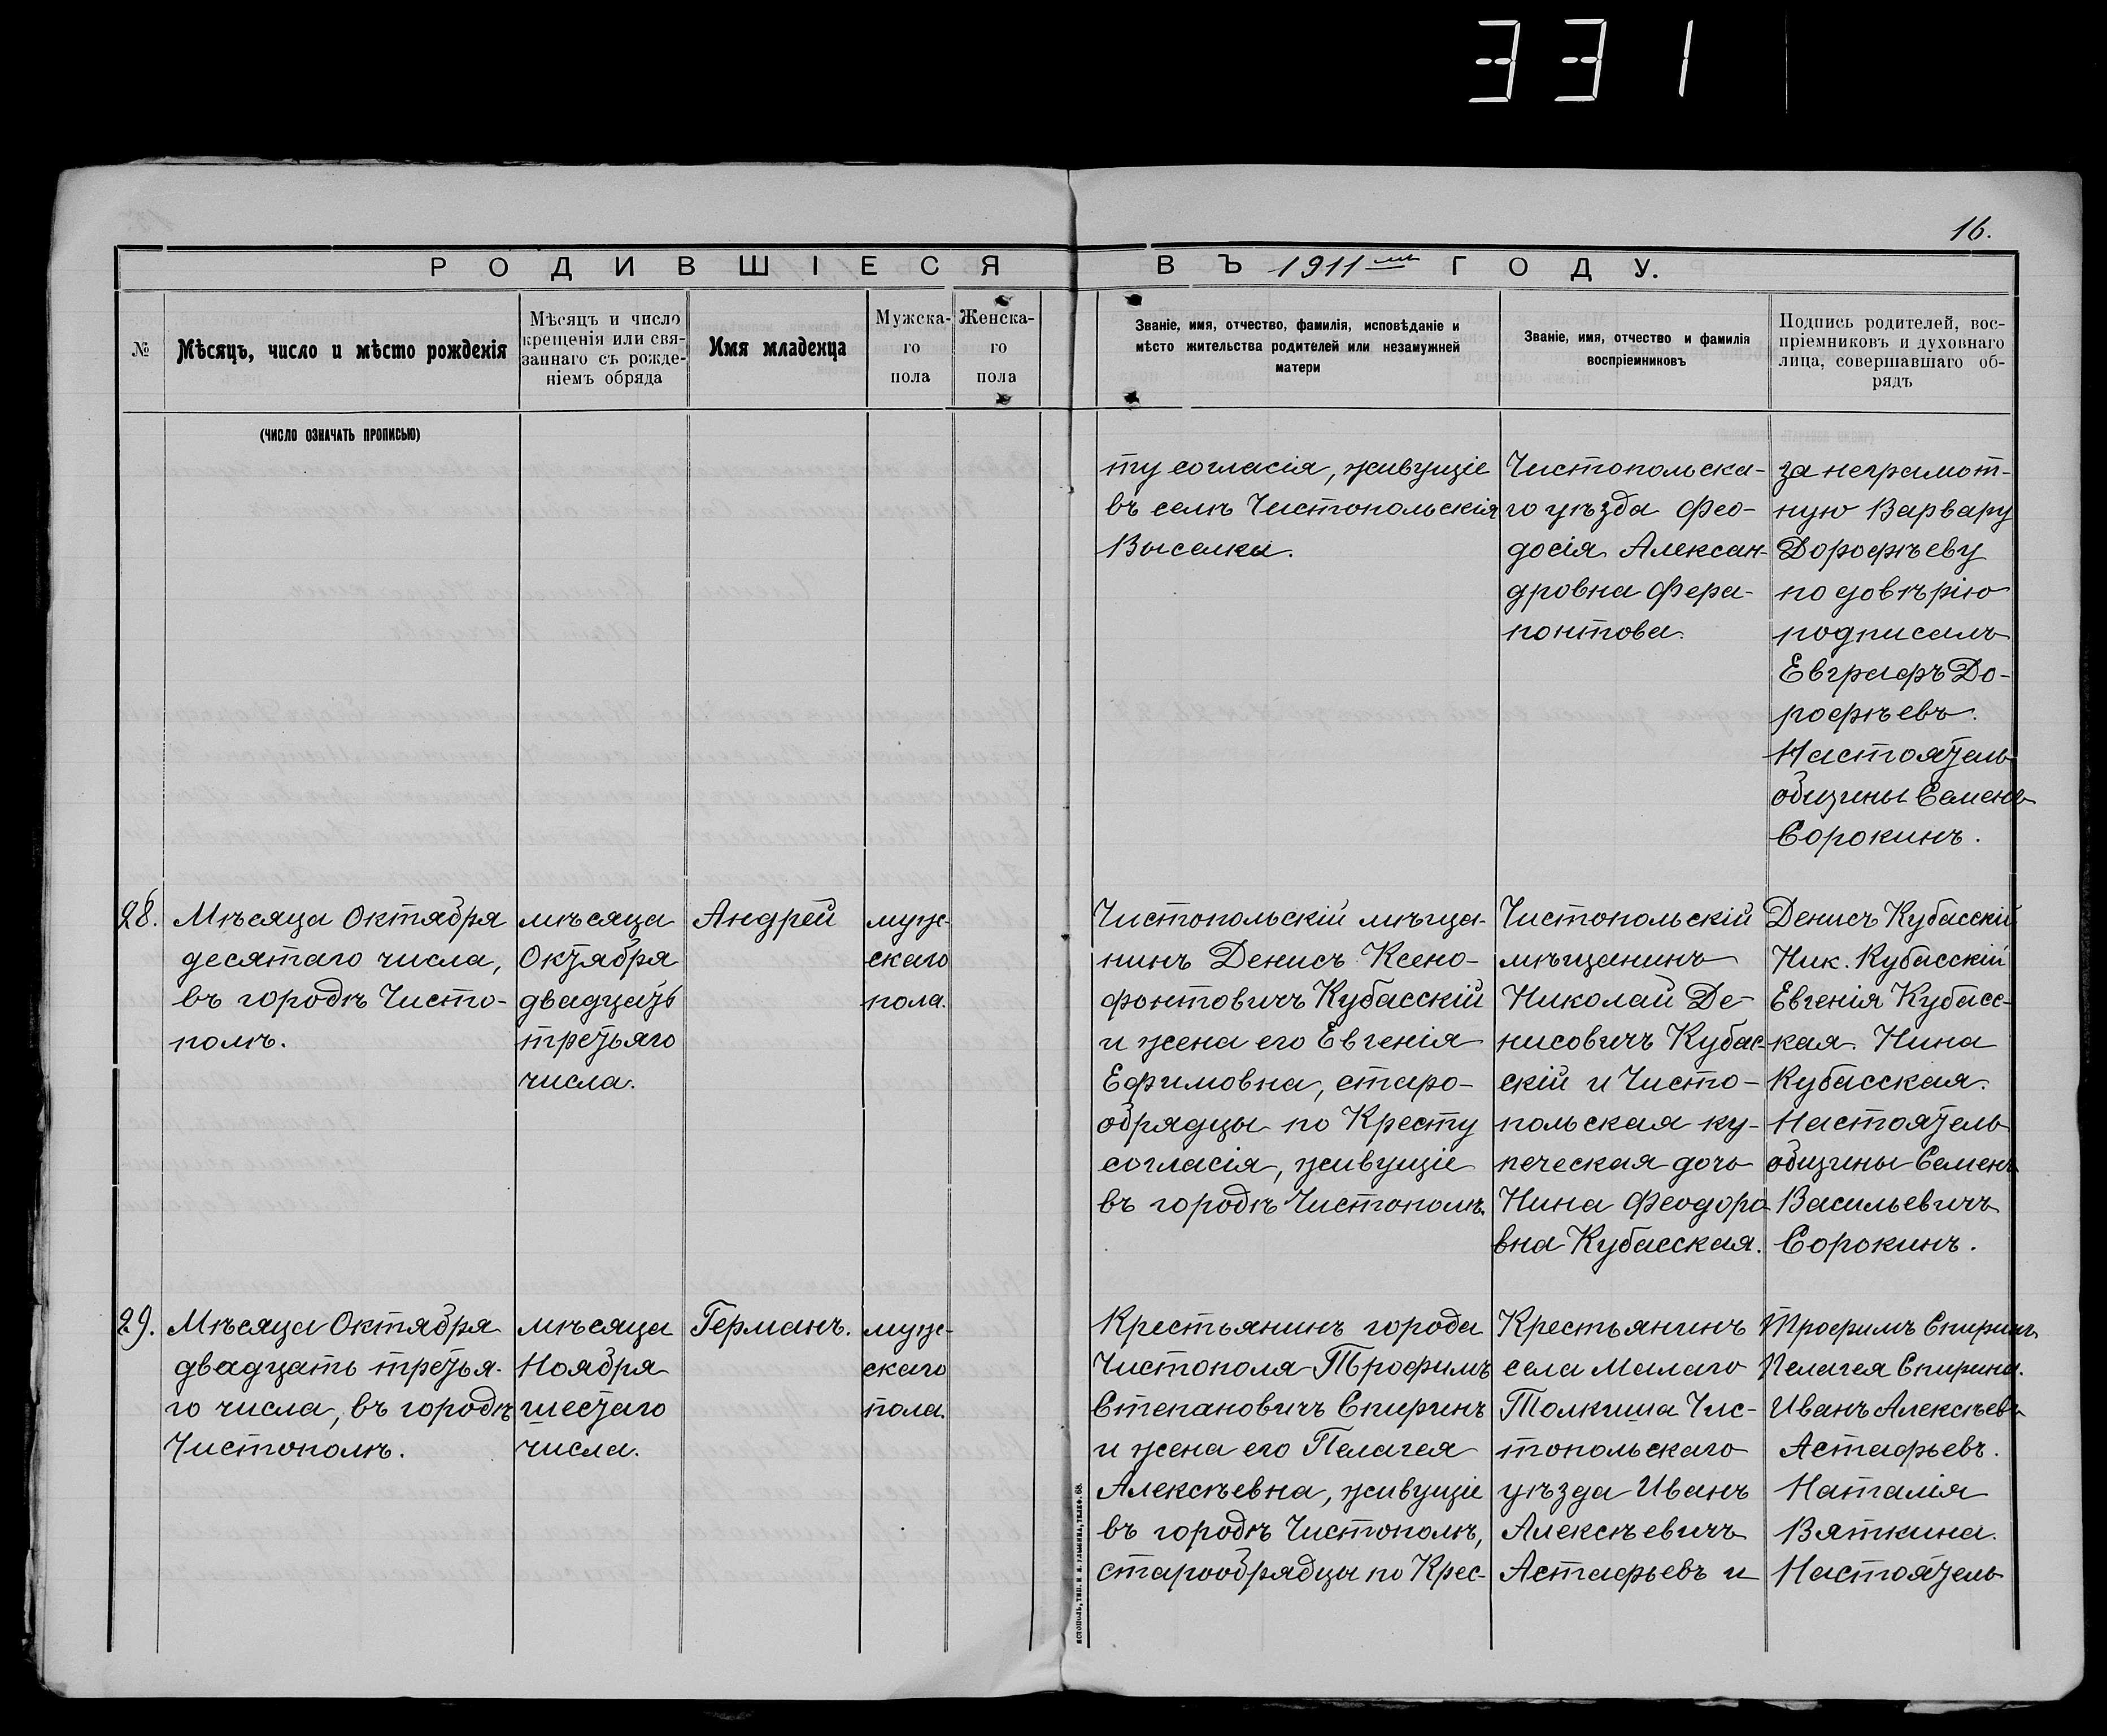 331
16.
РОДИВШІЕСЯ ВЪ 1911 ГОДУ.
№
Мѣсяцъ, число и мѣсто рожденія
Мѣсяцъ и число
крещенія или свя-
заннаго съ рожде-
ніемъ обряда
Имя младенца
Мужска-
го
пола
Женска-
го
пола
Званіе, имя, отчество, фамилія, исповѣданіе и
мѣсто жительства родителей или незамужней
матери
Званіе, имя, отчество и фамилія
воспріемниковъ
Подпись родителей, вос-
пріемниковъ и духовнаго
лица, совершавшаго об-
рядъ
(ЧИСЛО ОЗНАЧАТЬ ПРОПИСЬЮ)
ту согласія, живущіе
въ селѣ Чистопольскія
Выселки.
Чистопольска-
го уѣзда Фео-
досія Алексан-
дровна Фера-
понтова.
за неграмот-
ную Варвару
Дорофѣеву
по довѣрію
подписалъ
Евграфъ До-
рофѣевъ.
Настоятель
общины Семенъ
Сорокинъ.
28.
Мѣсяца Октября
десятаго числа,
въ городѣ Чисто-
полѣ.
мѣсяца
Октября
двадцать
третьяго
числа.
Андрей
муж-
скаго
пола.
Чистопольскій мѣща-
нинъ Денисъ Ксено-
фонтовичъ Кубасскій
и жена его Евгенія
Ефимовна, старо-
обрядцы по Кресту
согласія, живущіе
въ городѣ Чистополѣ.
Чистопольскій
мѣщанинъ
Николай Де-
нисовичъ Кубас-
скій и Чисто-
польская ку-
печеская дочь
Нина Феодоро
вна Кубасская.
Денисъ Кубасскій
Ник. Кубасскій
Евгенія Кубасс-
кая. Нина
Кубасская.
Настоятель
общины Семенъ
Васильевичъ
Сорокинъ.
29.
Мѣсяца Октября
двадцать третья-
го числа, въ городѣ
Чистополѣ.
мѣсяца
Ноября
шестаго
числа.
Германъ.
муж-
скаго
пола.
Крестьянинъ города
Чистополя Трофимъ
Степановичъ Спиринъ
и жена его Пелагея
Алексѣевна, живущіе
въ городѣ Чистополѣ,
старообрядцы по Крес-
Крестьянинъ
села Малаго
Толкиша Чис-
топольскаго
уѣзда Иванъ
Алексѣевичъ
Астафьевъ и
Трофимъ Спиринъ
Пелагея Спирина.
Иванъ Алексѣевъ
Астафьевъ.
Наталія
Вяткина.
Настоятель